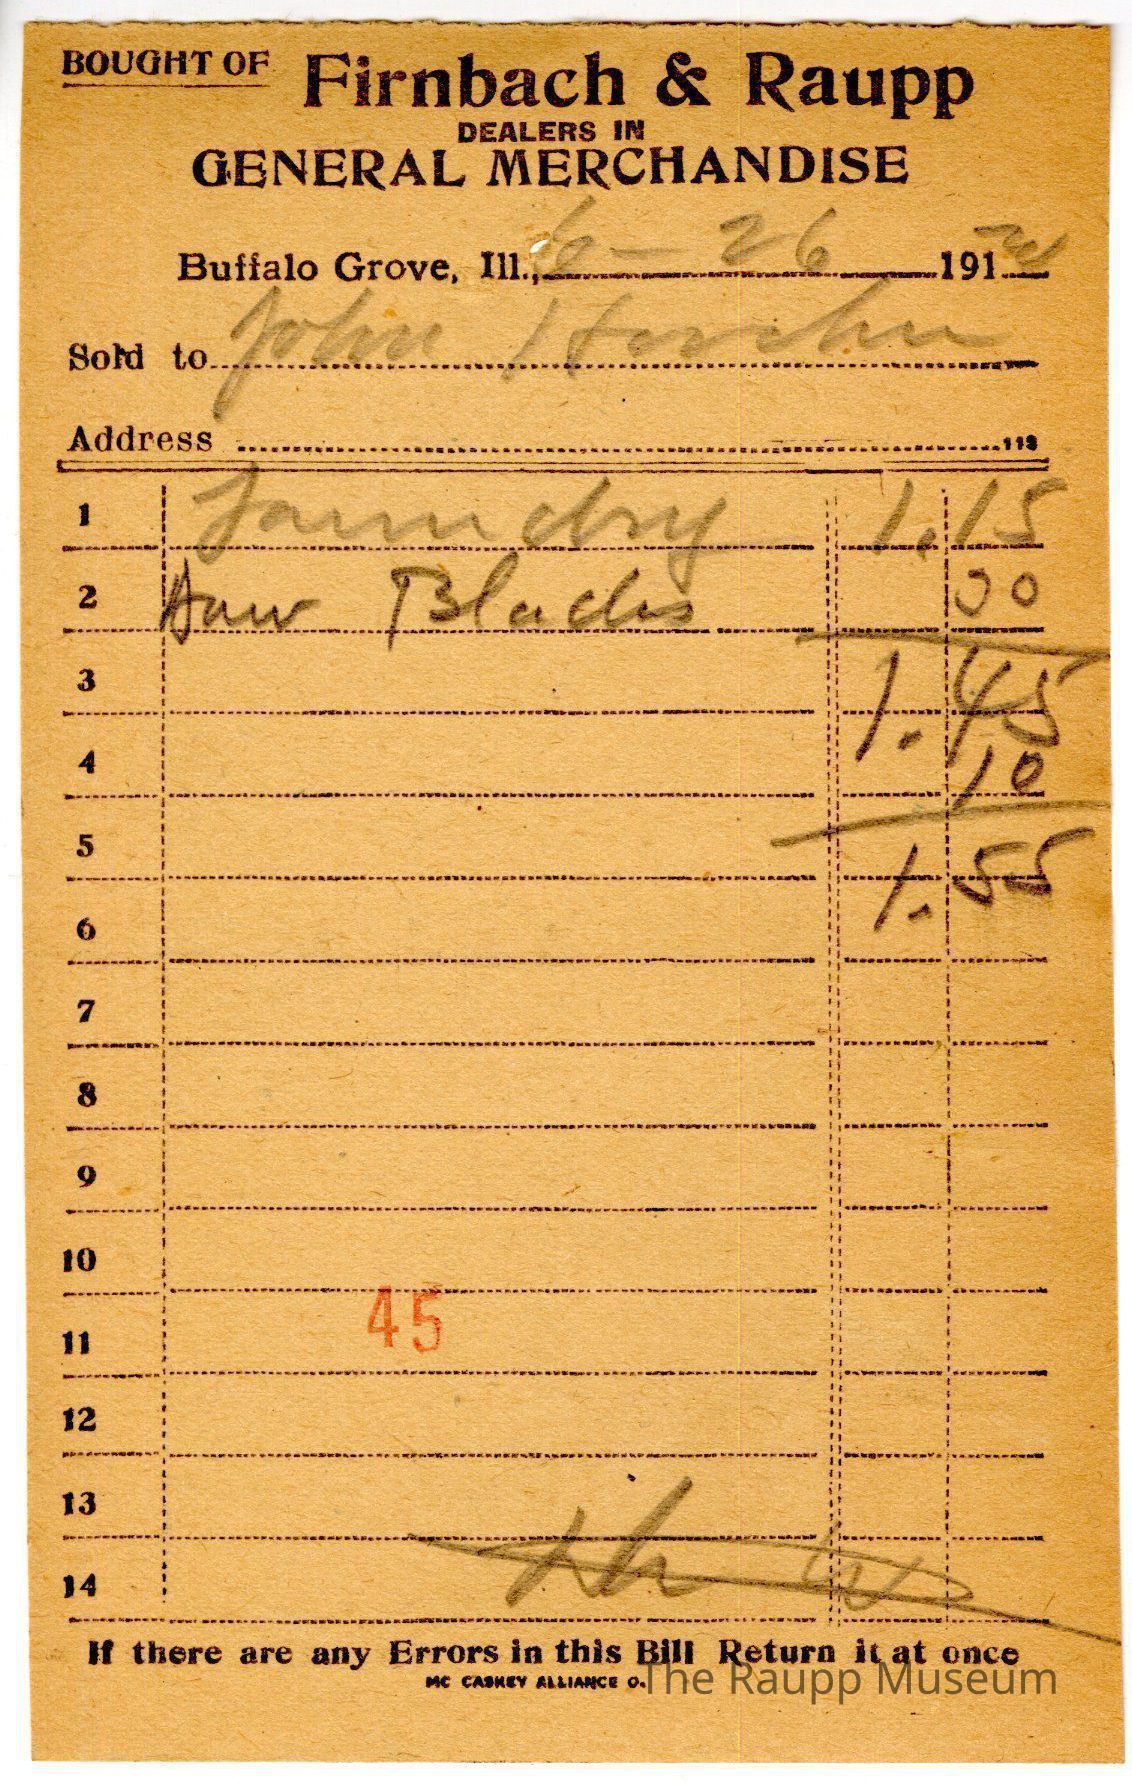 BOUGHT OF Firnbach & Raupp
DEALERS IN
GENERAL MERCHANDISE
Buffalo Grove, Ill., 6-26 191
Sold to John
Address 113
1 Laundry 1.15
2 Blades 30
3 1.45
4 10
5 1.55
6
7
8
9
10
45
11
12
13
14
If there are any Errors in this Bill Return it at once
MC CASKEY ALLIANCE O.
The Raupp Museum